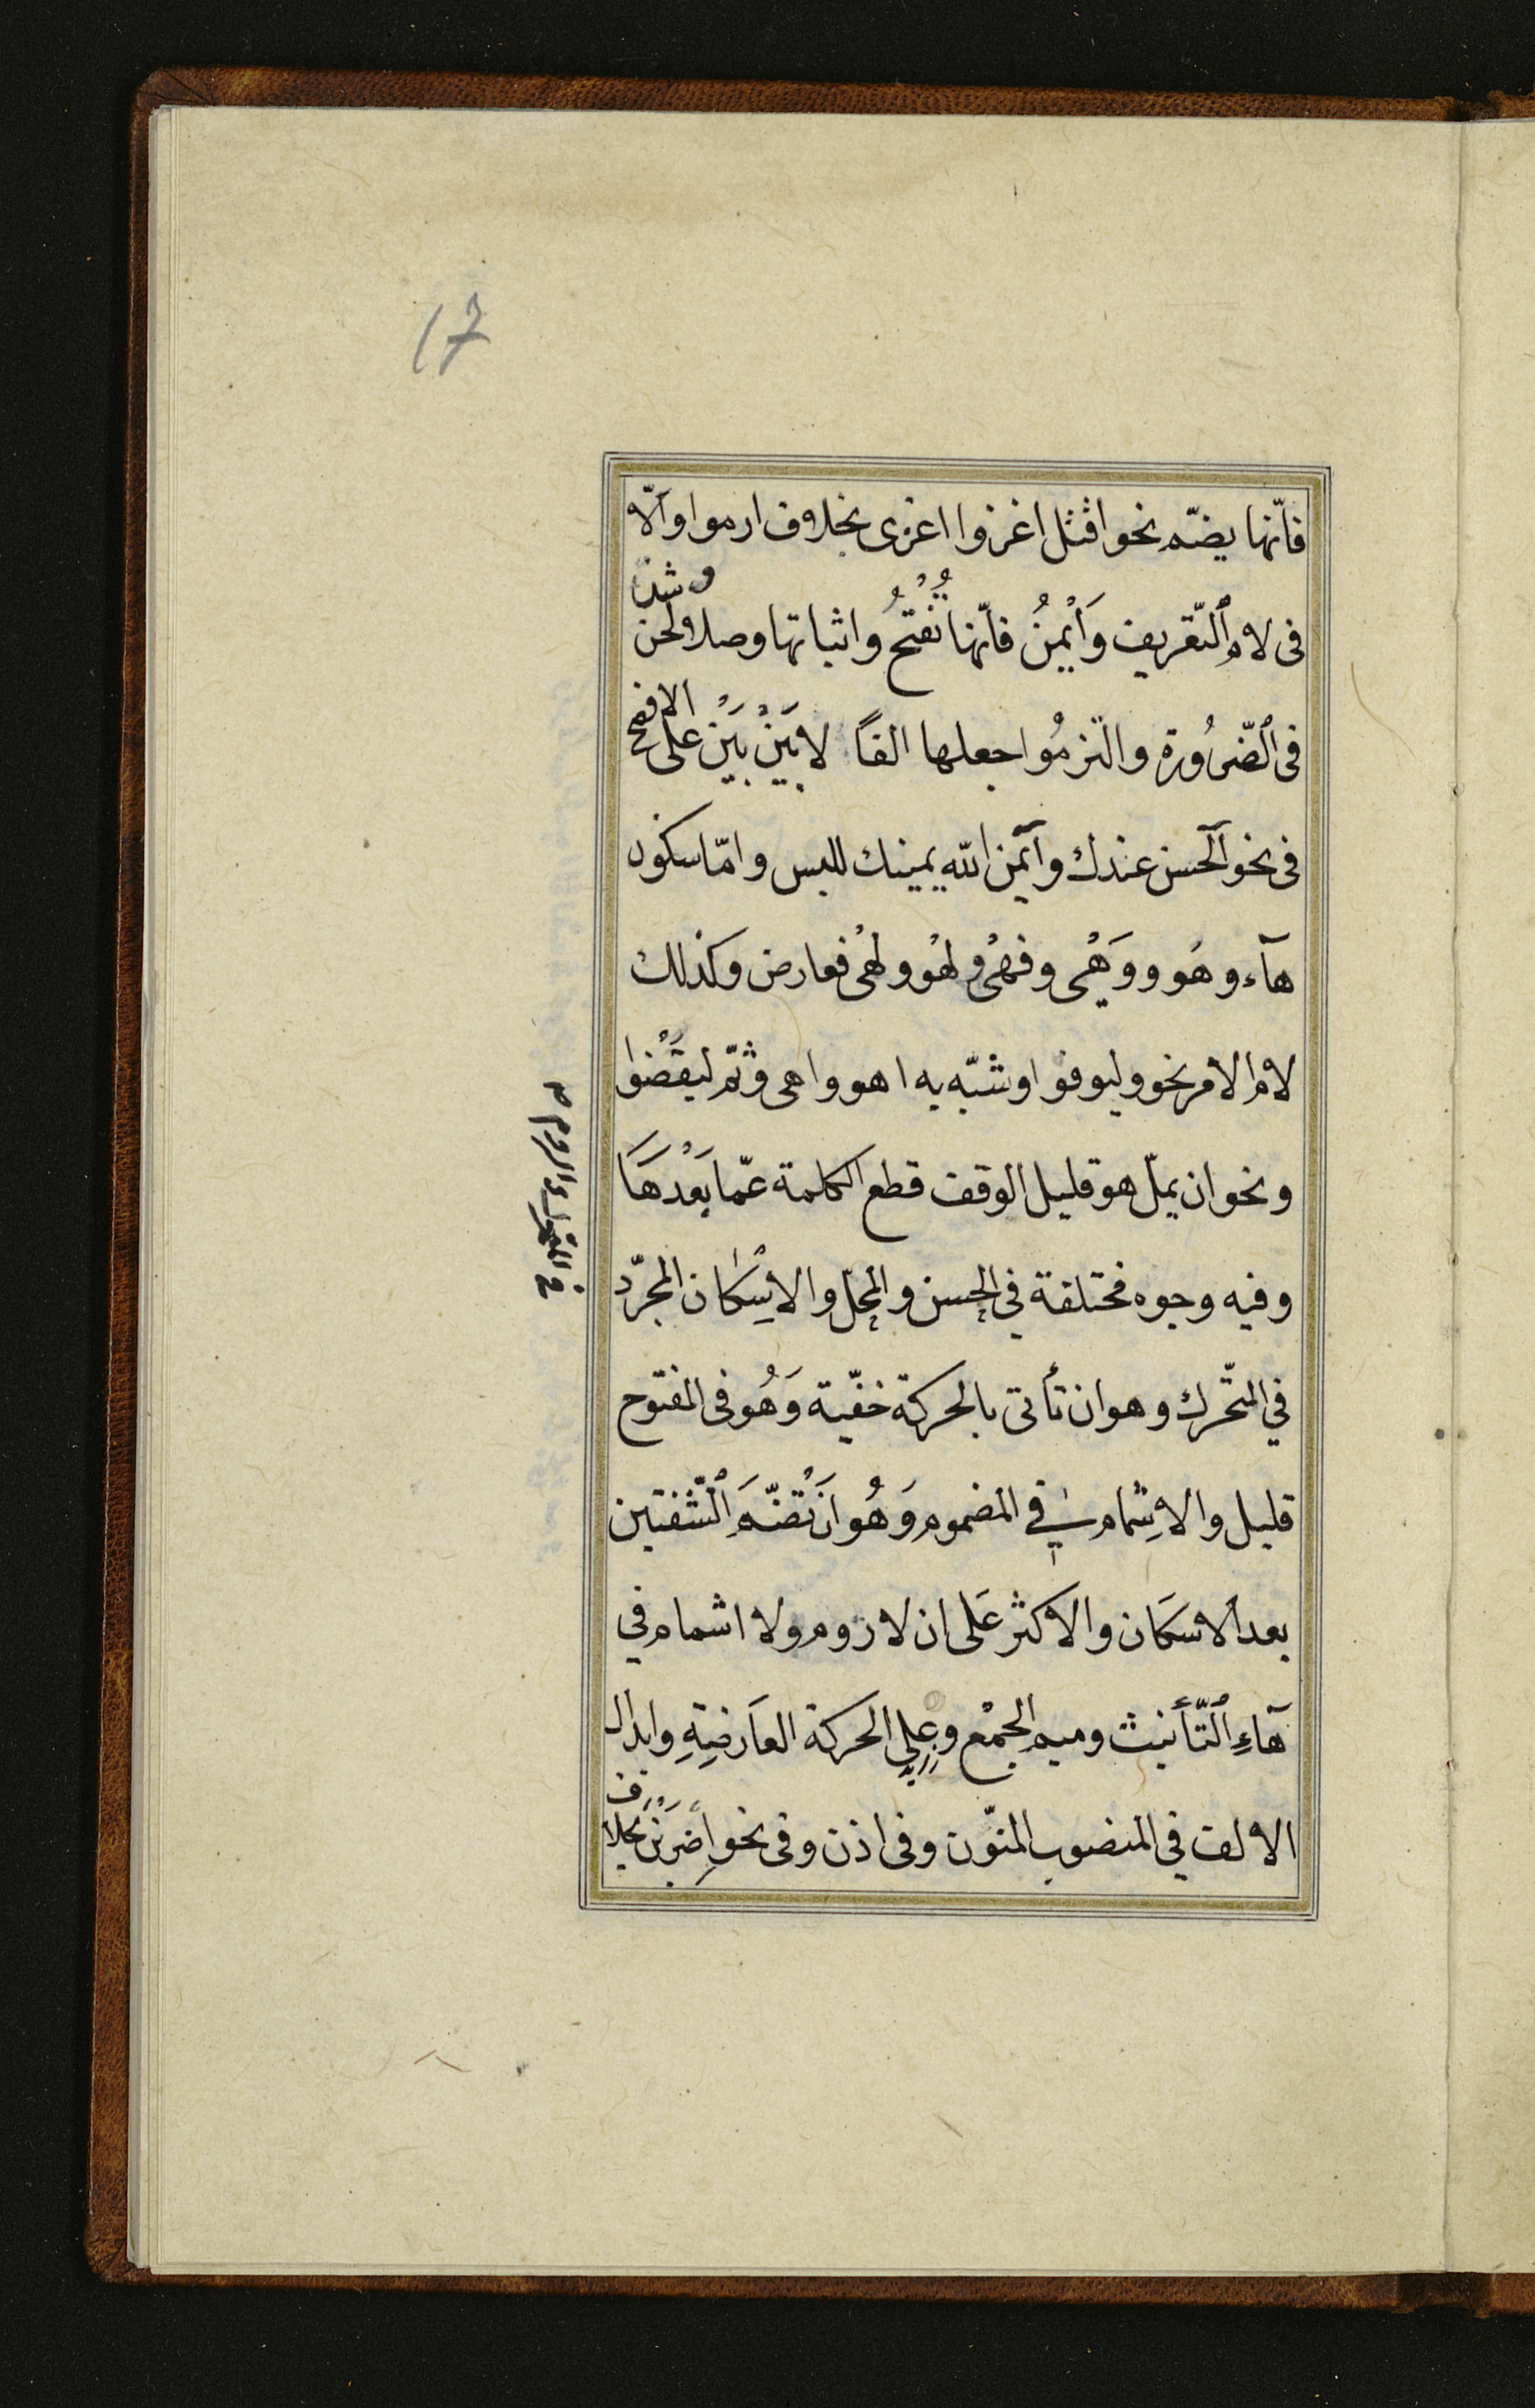 17
فانّها يضمّ نحو اقتل اغزوا اغزى بخلاف ارموا والّا
فى لام ٱلتّعريف وَأَيْمنُ فانّها تُفْتَحُ واثباتها وصلا لحن
وشذّ
فى ٱلضّرُورة والتزمُوا جعلها الفاً لا بَيْنَ بَيْنَ على
الافصح
فى نحو آلحسن عندك وآيمن الله يمينك للبس وامّا سكون
هآء وهُو ووَهْى وفهْى ولهْو ولهْى فعارض وكذلك
لام الامر نحو وليوفوا وشبّه به اهو واهى وثمّ ليقْضُوا
ونحو ان يملّ هو قليل الوقف قطع الكلمة عمّا بَعْدهَا
وفيه وجوه مختلفة في الحسن والمحلّ والاِسْكان المجرّد
في المتّحرك وهو ان تأتى بالحركة خفّية وَهُو فى المفتوح
والروم
قليل والاِشمام في المضموم وَهُو اَنْ تضمَّ ٱلشّفتين
بعد الاسكَان والاكثر عَلى ان لا روم ولا اشمام في
هآءِ ٱلتّأنيث وميم الجمْع وعلى الحركة العَارضِةِ وابدال
الالف في المنصوب المنوّن وفى اذن وفى نحو اِضربَنْ بخلا
ف